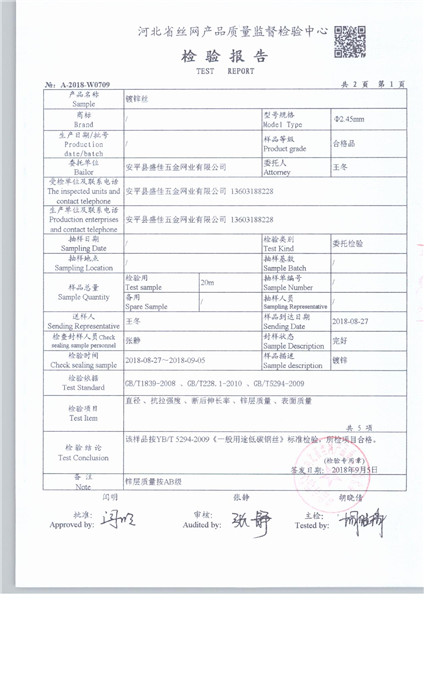 河北省丝网产品质量监督检验中心
检 验 报 告
TEST REPORT
№: A-2018-W0709 共 2 页 第 1 页
产品名称 Sample 镀锌丝
商标 Brand / 型号规格 Model Type Φ2.45mm
生产日期/批号 Production date/batch / 样品等级 Product grade 合格品
委托单位 Bailor 安平县盛佳五金网业有限公司 委托人 Attorney 王冬
受检单位及联系电话 The inspected units and contact telephone 安平县盛佳五金网业有限公司 13603188228
生产单位及联系电话 Production enterprises and contact telephone 安平县盛佳五金网业有限公司 13603188228
抽样日期 Sampling Date / 检验类别 Test Kind 委托检验
抽样地点 Sampling Location / 抽样基数 Sample Batch /
样品总量 Sample Quantity 检验用 Test sample 20m 抽样单编号 Sample Number /
备用 Spare Sample / 抽样人员 Sampling Representative /
送样人 Sending Representative 王冬 样品到达日期 Sending Date 2018-08-27
检查封样人员Check sealing sample personnel 张静 封样状态 Sample Description 完好
检验时间 Check sealing sample 2018-08-27～2018-09-05 样品描述 Sample description 镀锌
检验依据 Test Standard GB/T1839-2008 、GB/T228.1-2010 、GB/T5294-2009
检验项目 Test Item 直径、抗拉强度、断后伸长率、锌层质量、表面质量
共 5 项
检验结论 Test Conclusion 该样品按YB/T 5294-2009《一般用途低碳钢丝》标准检验，所检项目合格。
(检验专用章)
签发日期: 2018年9月5日
备 注 Note 锌层质量按AB级
闫明 张静 胡晓倩
批准: Approved by: 闫明 审核: Audited by: 张静 主检: Tested by: